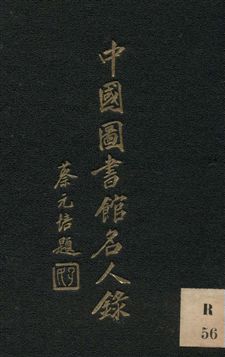 中國圖書館名人錄
蔡元培題
R
56